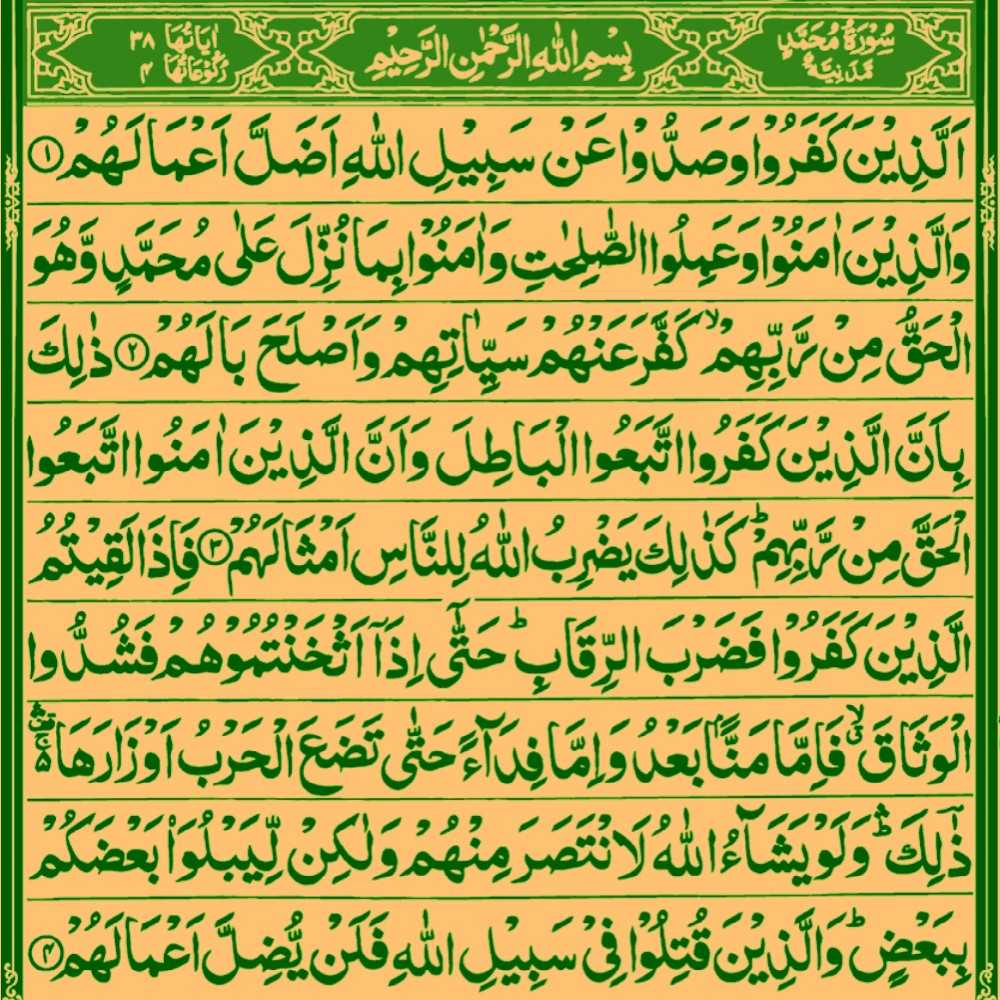 سُوْرَةُ مُحَمَّدٍ مَّدَنِيَّةٌ
بِسْمِ اللّٰهِ الرَّحْمٰنِ الرَّحِيْمِ
اٰيَاتُهَا ٣٨ رُكُوْعَاتُهَا ٤
اَلَّذِيْنَ كَفَرُوْا وَصَدُّوْا عَنْ سَبِيْلِ اللّٰهِ اَضَلَّ اَعْمَالَهُمْ ﴿١﴾
وَالَّذِيْنَ اٰمَنُوْا وَعَمِلُوا الصّٰلِحٰتِ وَاٰمَنُوْا بِمَا نُزِّلَ عَلٰى مُحَمَّدٍ وَّهُوَ
الْحَقُّ مِنْ رَّبِّهِمْ ۙ كَفَّرَ عَنْهُمْ سَيِّاٰتِهِمْ وَاَصْلَحَ بَالَهُمْ ﴿٢﴾ ذٰلِكَ
بِاَنَّ الَّذِيْنَ كَفَرُوا اتَّبَعُوا الْبَاطِلَ وَاَنَّ الَّذِيْنَ اٰمَنُوا اتَّبَعُوا
الْحَقَّ مِنْ رَّبِّهِمْ ؕ كَذٰلِكَ يَضْرِبُ اللّٰهُ لِلنَّاسِ اَمْثَالَهُمْ ﴿٣﴾ فَاِذَا لَقِيْتُمُ
الَّذِيْنَ كَفَرُوْا فَضَرْبَ الرِّقَابِ ؕ حَتّٰٓى اِذَاۤ اَثْخَنْتُمُوْهُمْ فَشُدُّوا
الْوَثَاقَ ۙ فَاِمَّا مَنًّۢا بَعْدُ وَاِمَّا فِدَآءً حَتّٰى تَضَعَ الْحَرْبُ اَوْزَارَهَا
ذٰلِكَ ۛؕ وَلَوْ يَشَآءُ اللّٰهُ لَانْتَصَرَ مِنْهُمْ وَلٰكِنْ لِّيَبْلُوَا۟ بَعْضَكُمْ
بِبَعْضٍ ؕ وَالَّذِيْنَ قُتِلُوْا فِيْ سَبِيْلِ اللّٰهِ فَلَنْ يُّضِلَّ اَعْمَالَهُمْ ﴿٤﴾